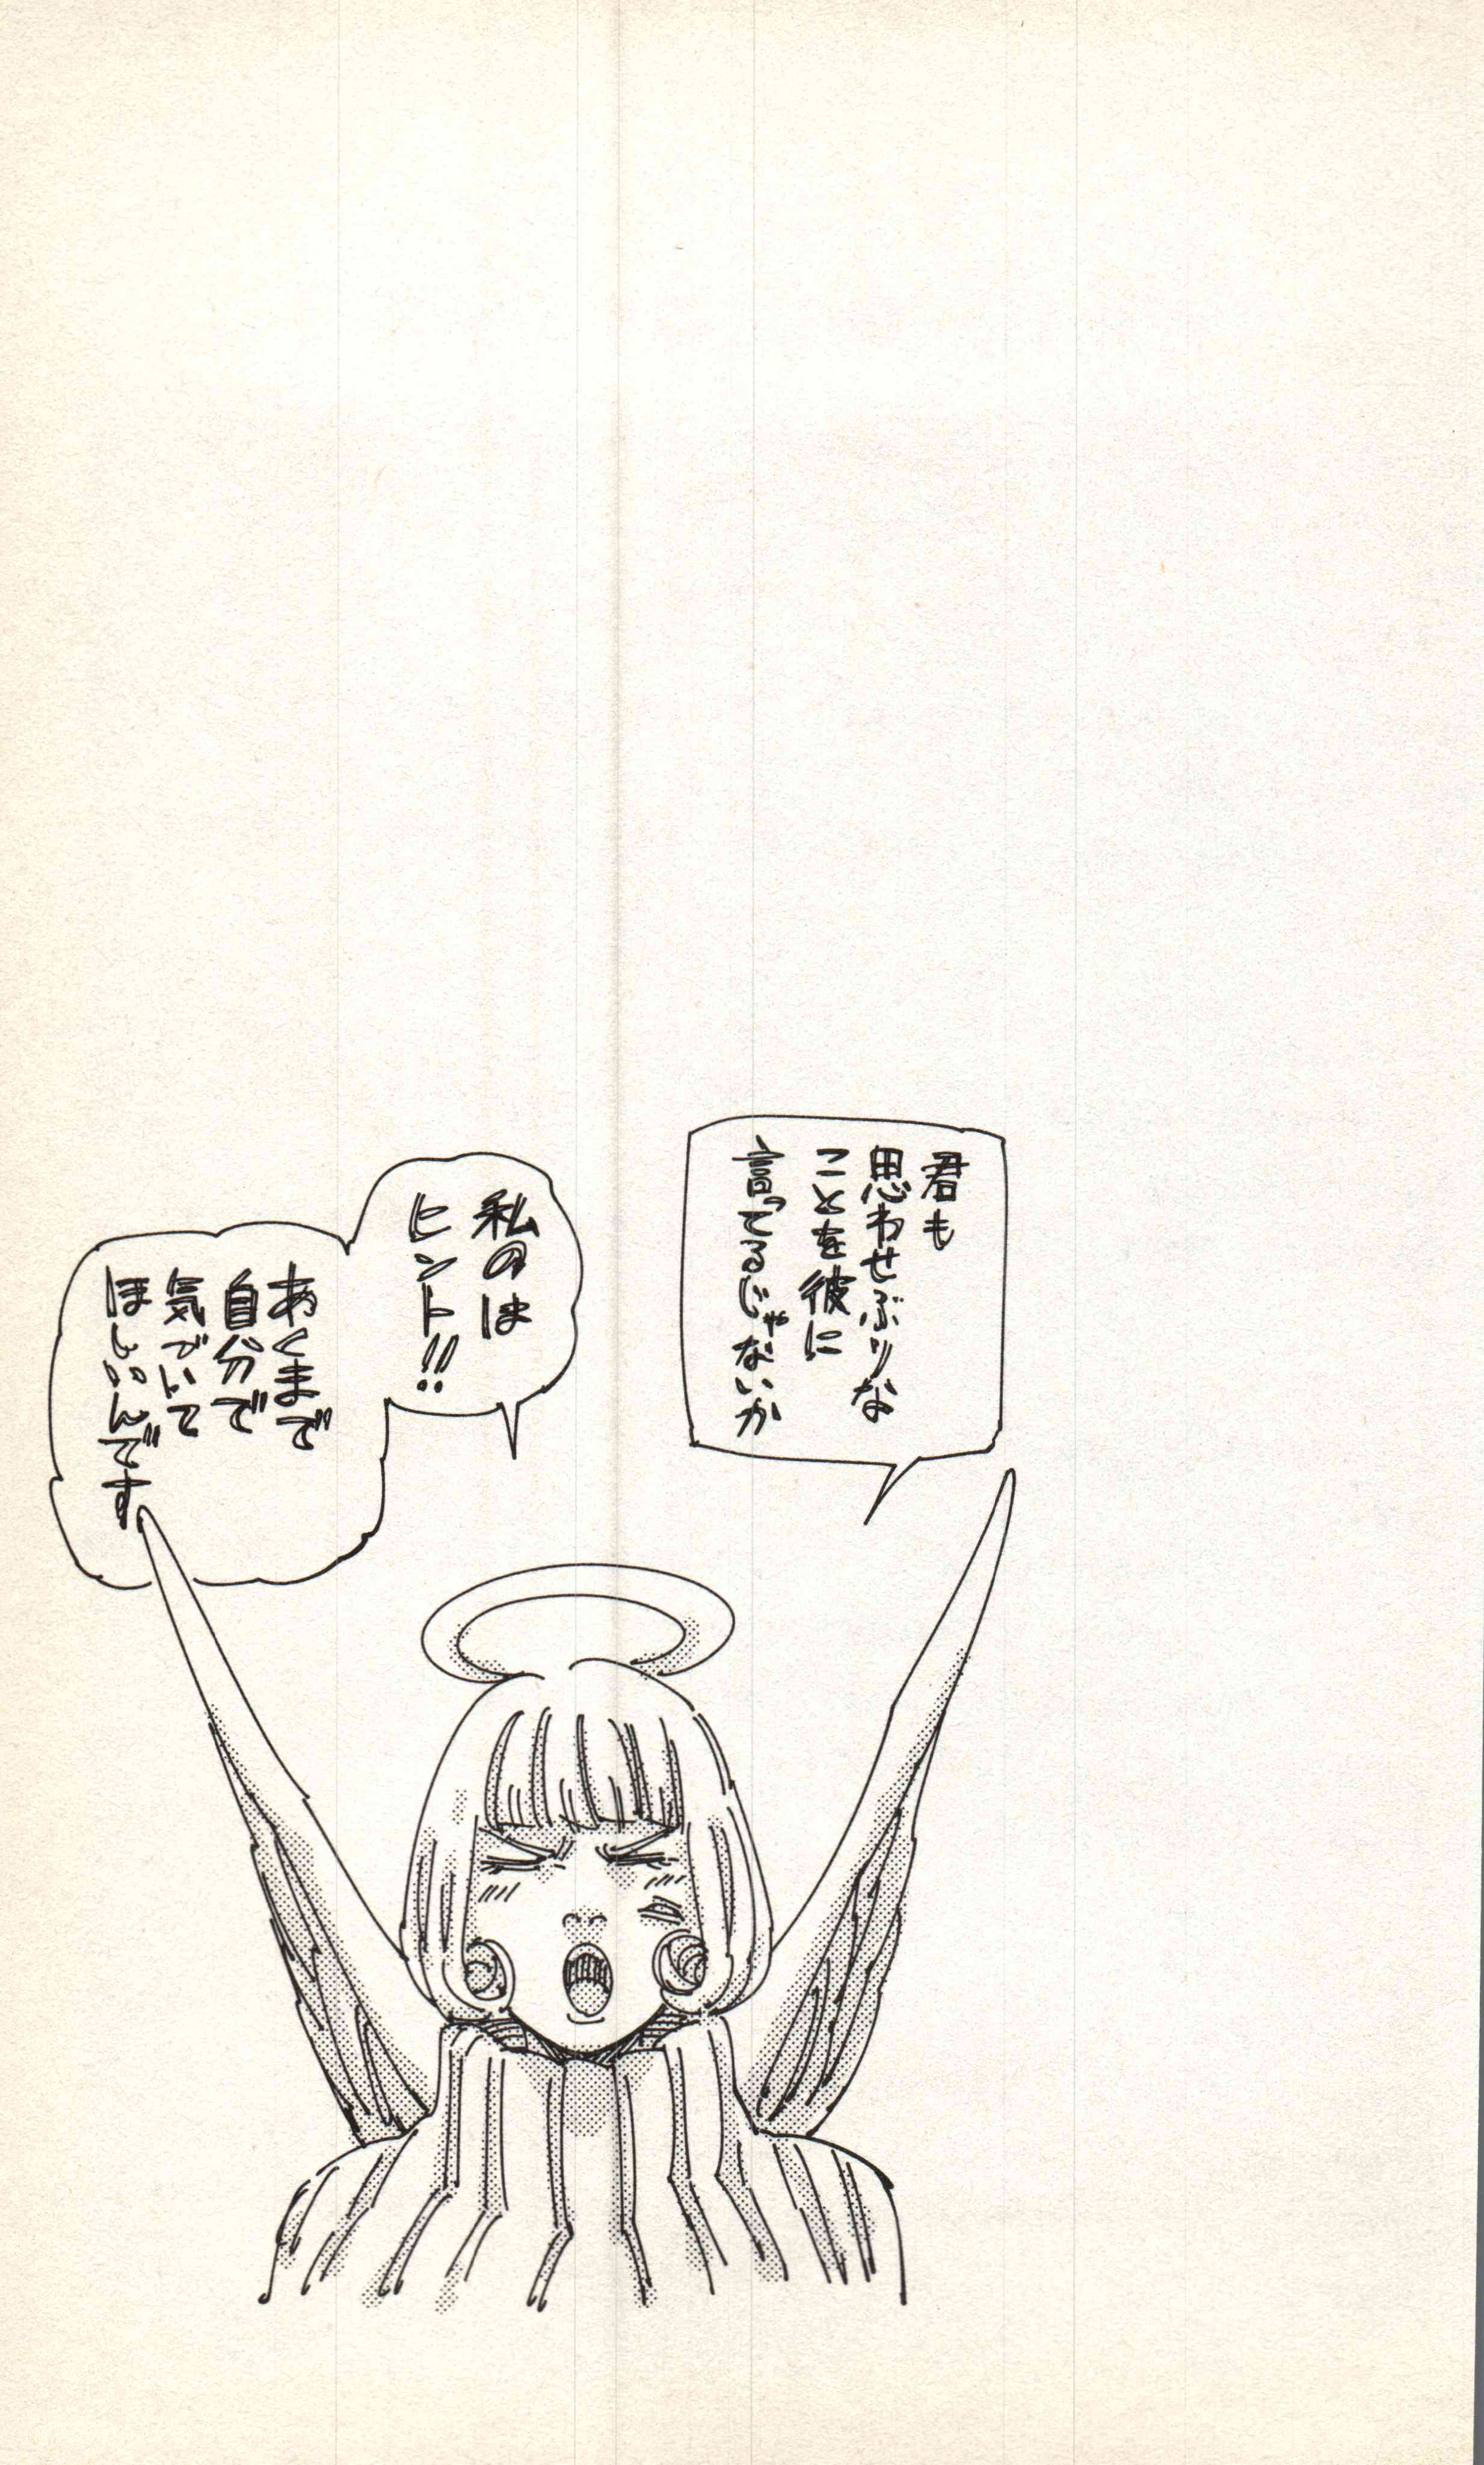 君も
思わせぶりな
ことを彼に
言ってるじゃないか
私のは
ヒント!!
あくまで
自分で
気づいて
ほしいんです